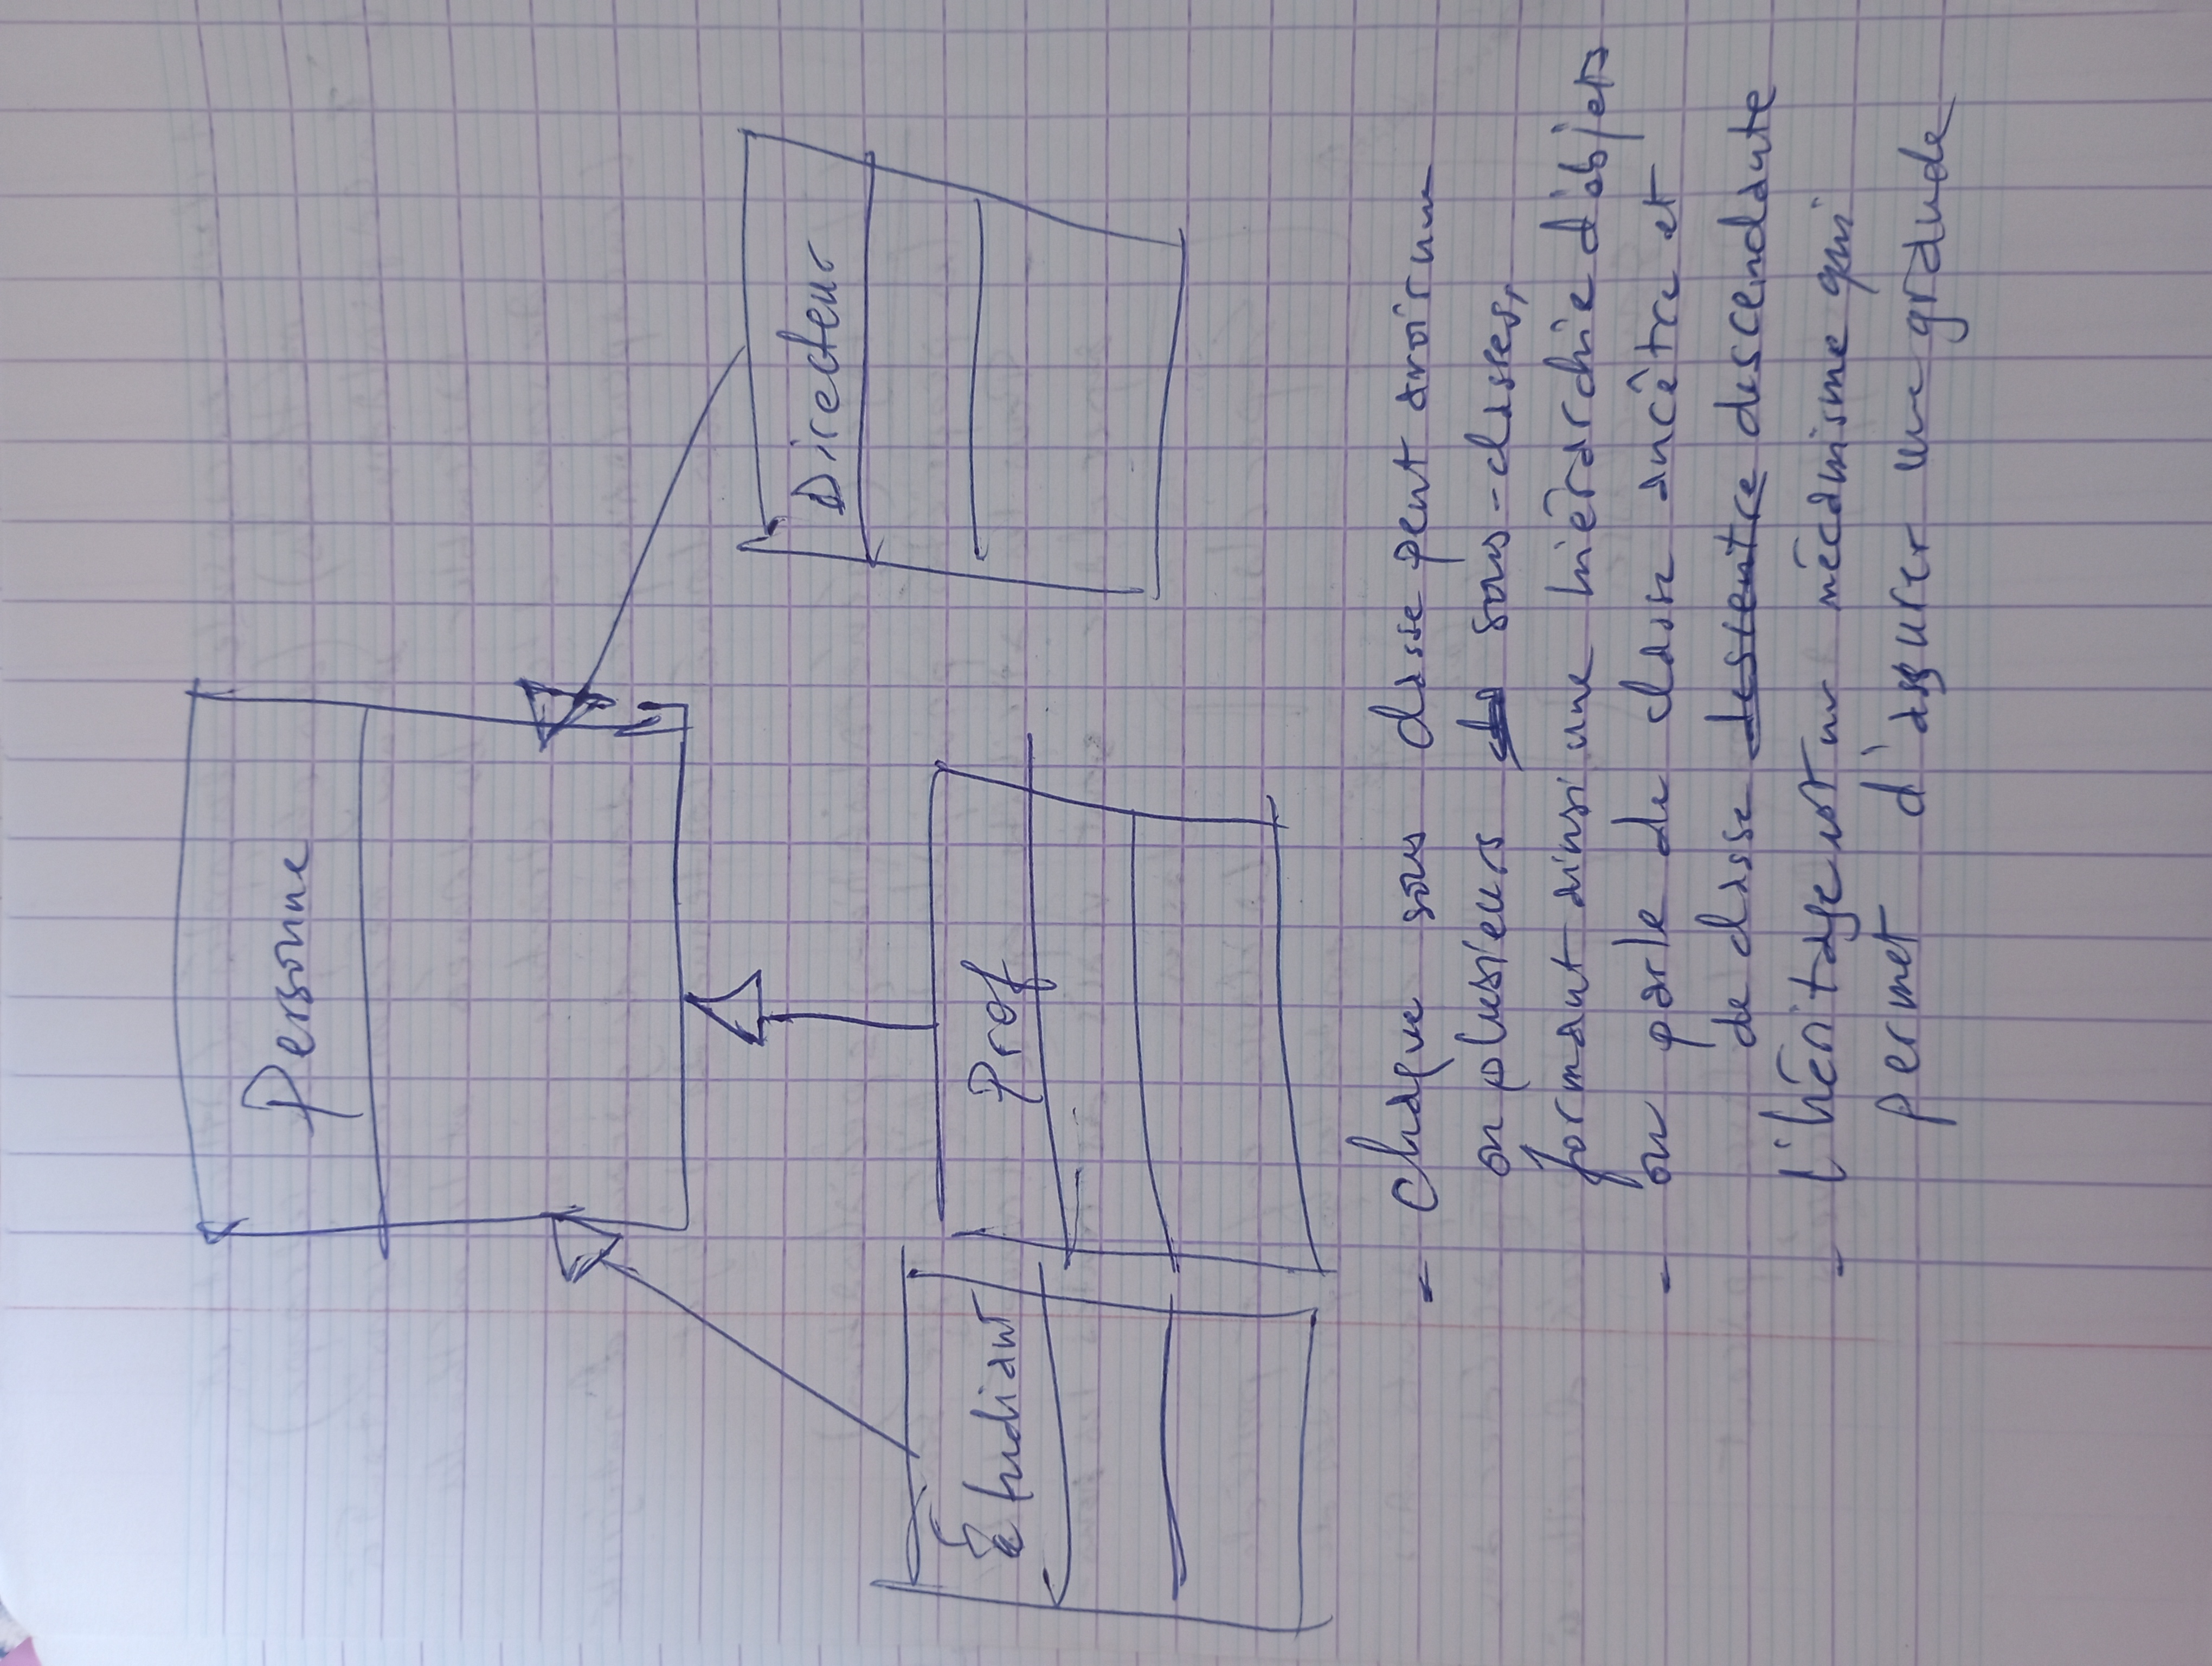 Personne
Directeur
Étudiant
Prof
- chaque sous classe peut avoir une
ou plusieurs sous-classes,
formant ainsi une hiérarchie d'objets
- on parle de classe ancêtre et
de classe descendante
- l'héritage est un mécanisme qui
permet d'assurer une grande